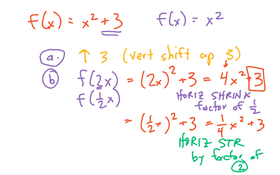 f(x) = x² + 3 f(x) = x²
a. ↑ 3 (vert shift up 3)
b f(2x) = (2x)² + 3 = 4x² + 3
HORIZ SHRINK
factor of ½
f(½x) = (½x)² + 3 = ¼x² + 3
HORIZ STR
by factor of
2